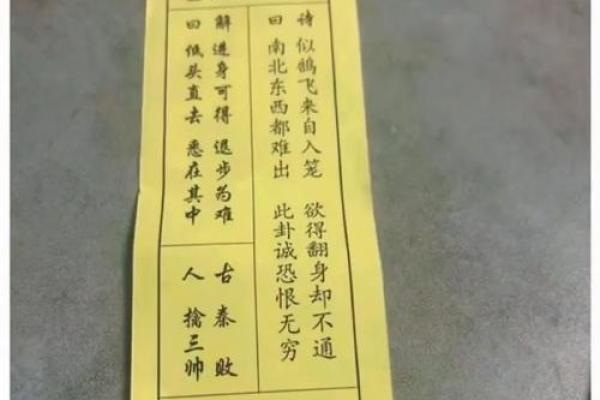 诗 似鹄飞来自入笼 欲得翻身却不通
曰 南北东西都难出 此卦诚恐恨无穷
解 进身可得 退步为难
曰 低头直去 悉在其中
古 秦败
人 擒三帅